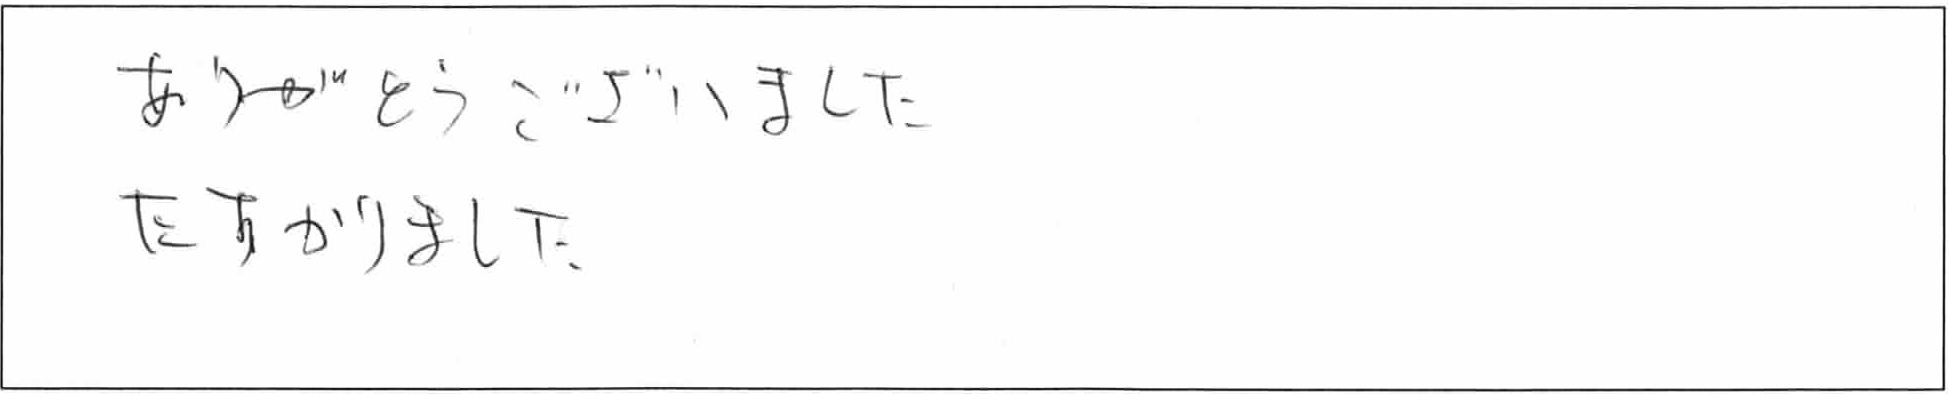 ありがとうございました
たすかりました